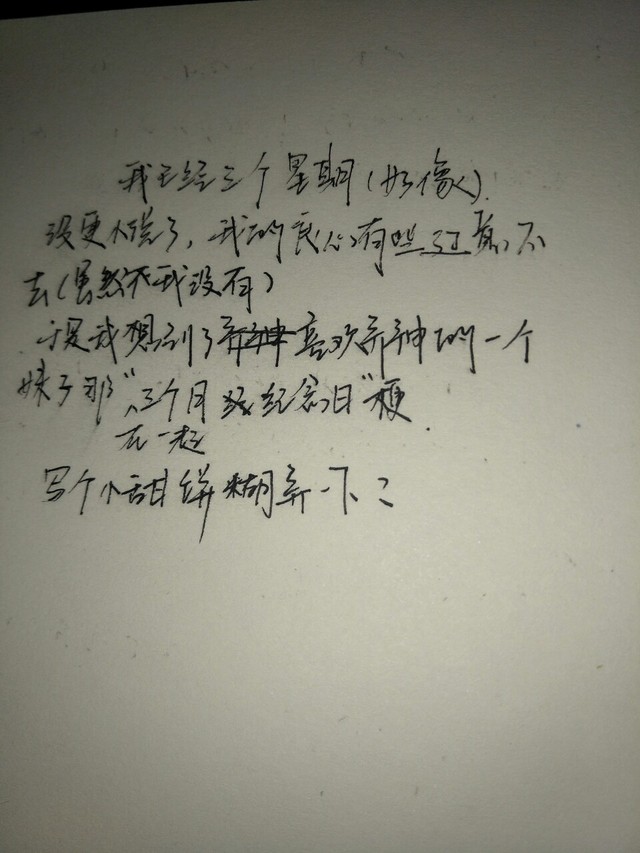 我已经三个星期(好像)
没更小说了,我的良心有些过意不
去(虽然我没有)
于是我想到了喜欢弄神的一个
妹子那"三个月纪念日"梗.
在一起
写个小甜饼糊弄一下: